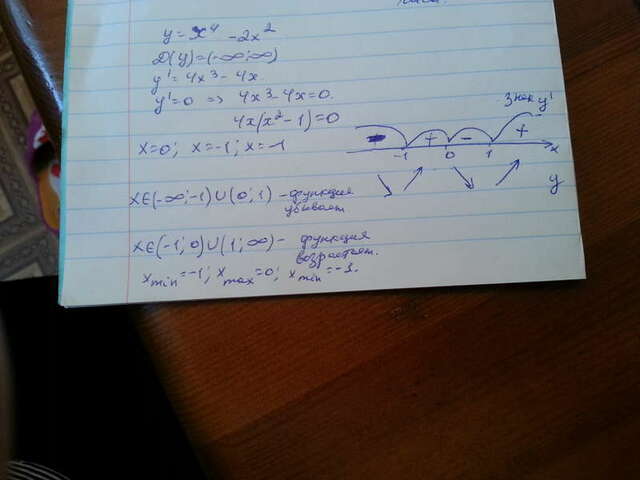 y = x⁴ - 2x²
D(y) = (-∞; ∞)
y' = 4x³ - 4x
y' = 0 => 4x³ - 4x = 0.
4x(x² - 1) = 0
x = 0; x = -1; x = -1
знак y'
- + - +
-1 0 1 x
y
x∈(-∞; -1) ∪ (0; 1) - функция
убывает
x∈(-1; 0) ∪ (1; ∞) - функция
возрастает.
x min = -1; x max = 0; x min = -1.